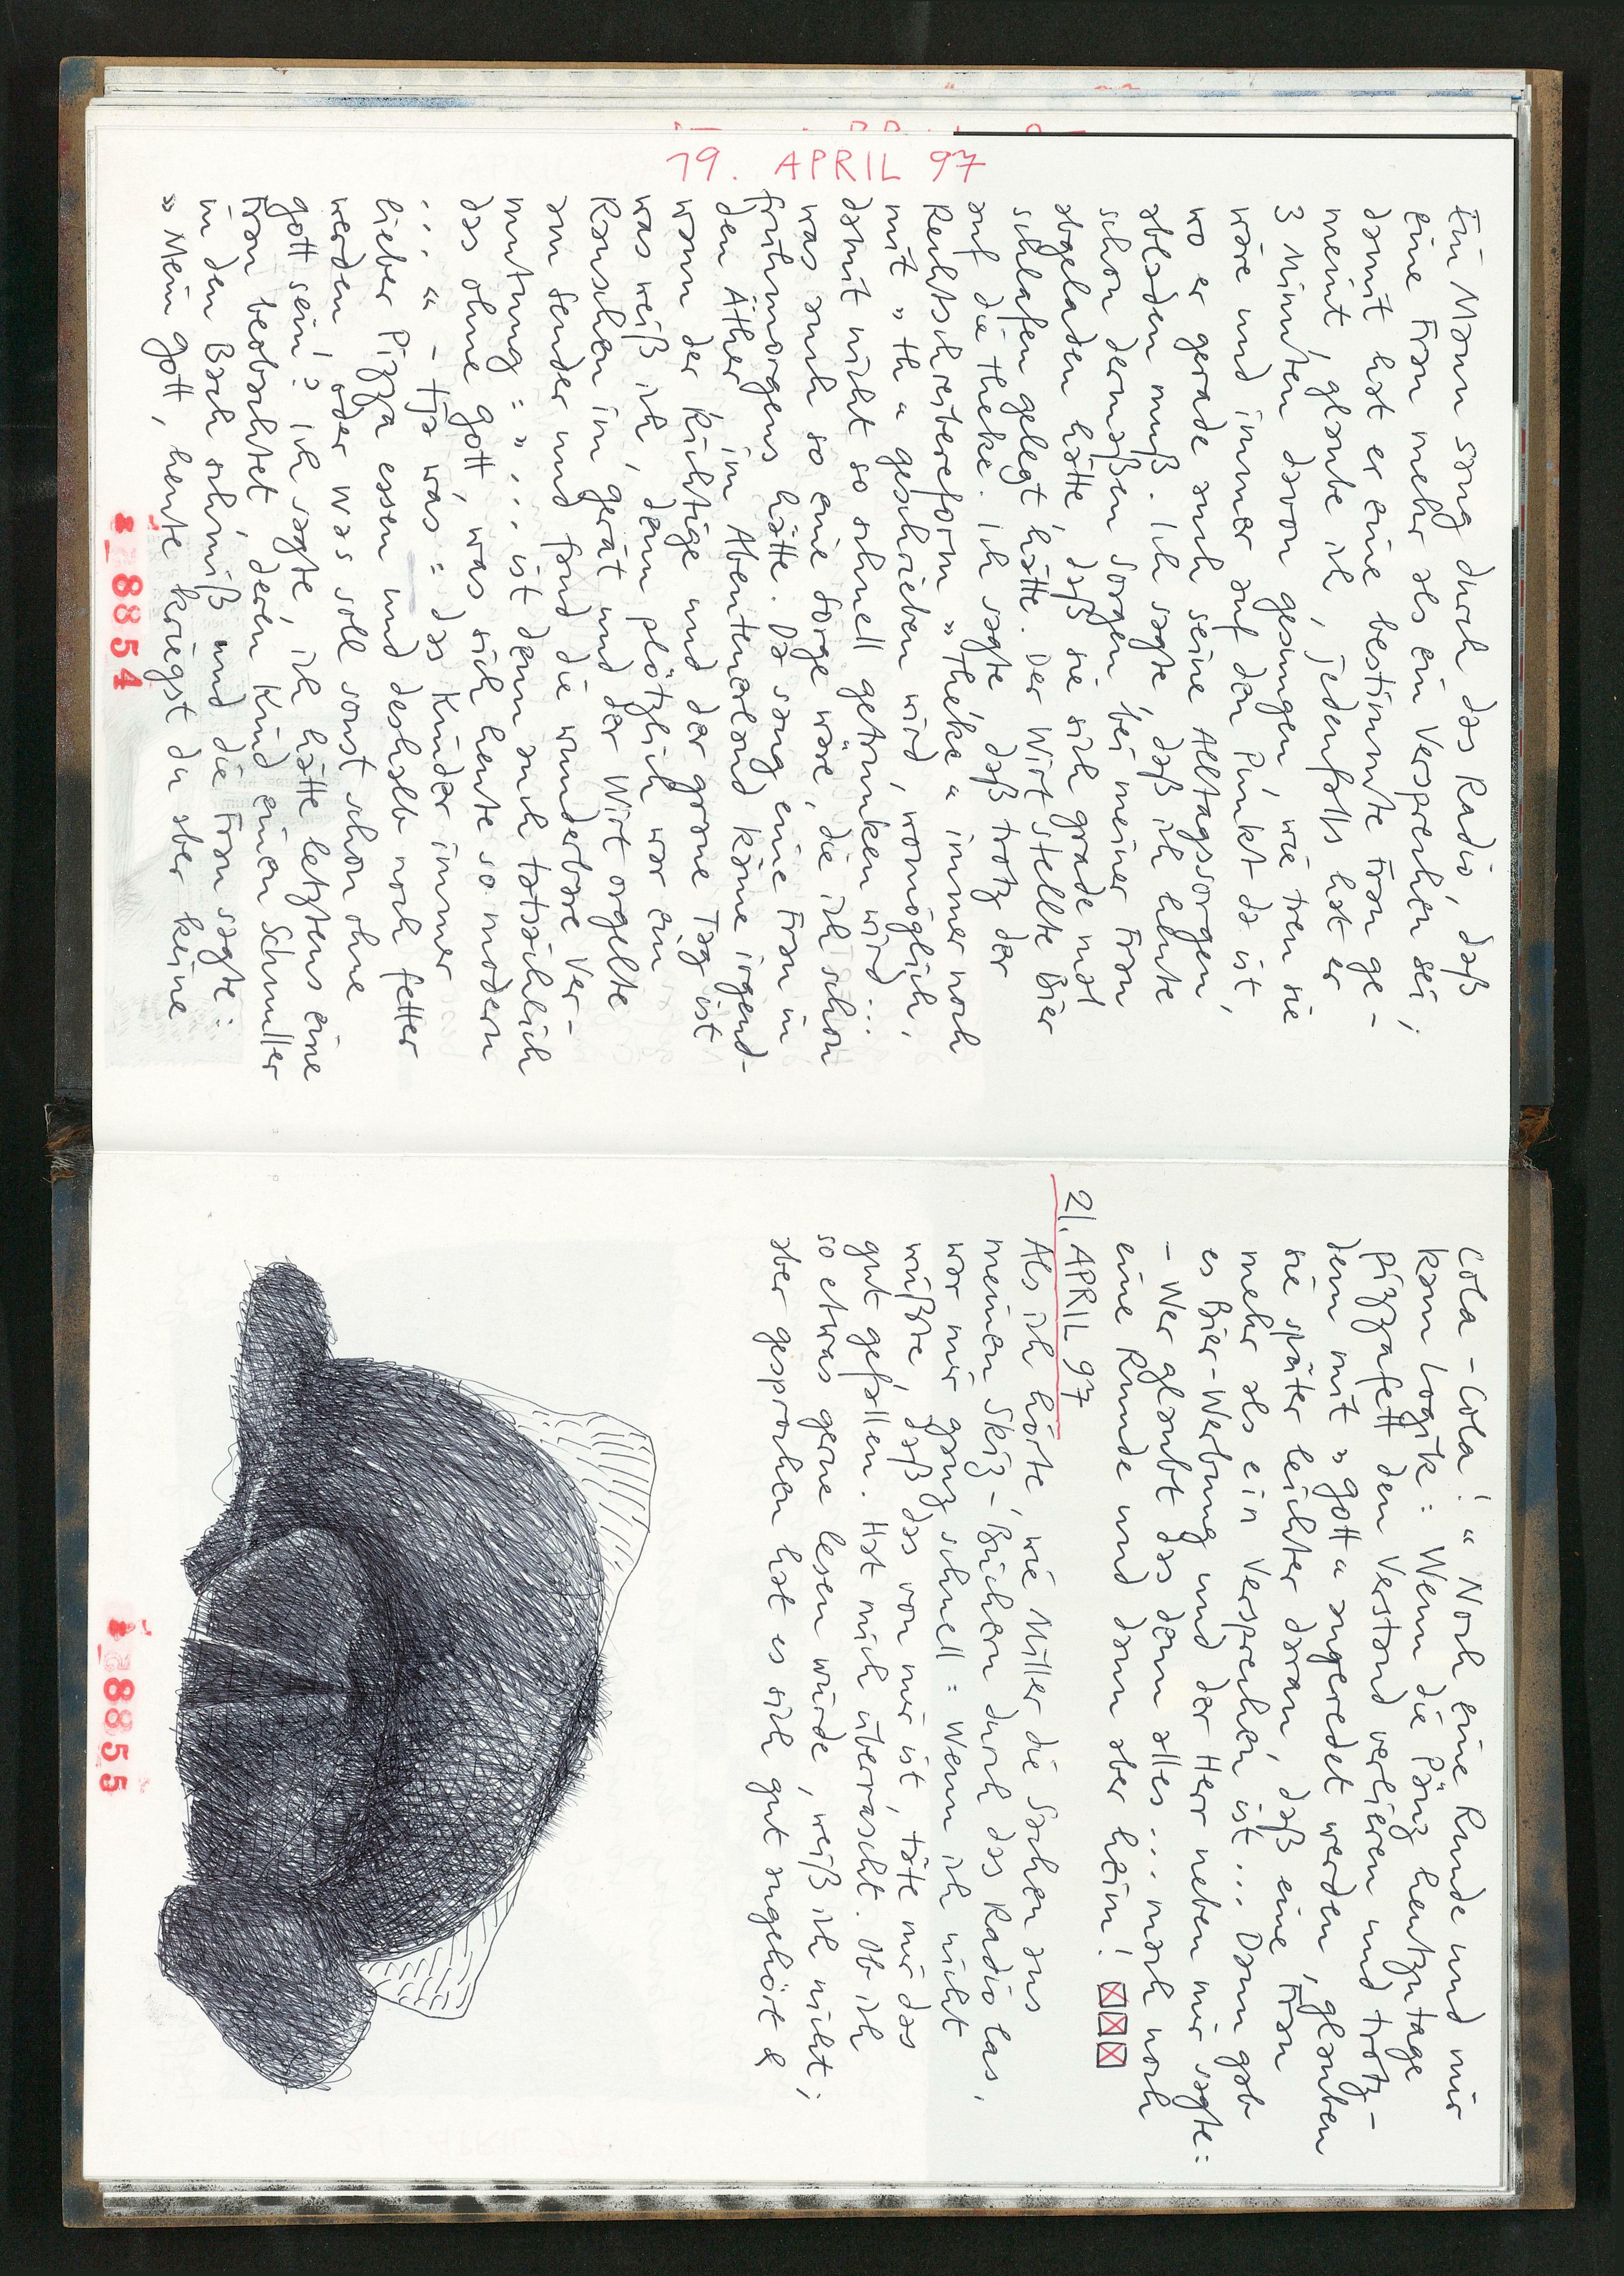 19. APRIL 97
Ein Mann sang durch das Radio, daß
eine Frau mehr als ein Versprechen sei;
damit hat er eine bestimmte Frau ge-
meint, glaube ich, jedenfalls hat er
3 Minuten davon gesungen, wie treu sie
wäre und immer auf den Punkt da ist,
wo er gerade auch seine Alltagssorgen
abladen muß. Ich sagte, daß ich heute
schon dermaßen Sorgen bei meiner Frau
abgeladen hätte, daß sie sich grade mal
schlafen gelegt hätte. Der Wirt stellte Bier
auf die Theke. Ich sagte, daß trotz der
Rechtschreibereform »Theke« immer noch
mit »th« geschrieben wird, womöglich,
damit nicht so schnell getrunken wird...
was auch so eine Sorge wäre, die ich schon
frühmorgens hätte. Da sang eine Frau in
den Äther, im Abenteuerland käme irgend-
wann der Richtige und der graue Tag ist
was weiß ich, denn plötzlich war ein
Rauschen im Gerät und der Wirt orgelte
am Sender und fand die wunderbare Ver-
mutung: »... ist denn auch tatsächlich
das ohne Gott, was sich heute so modern
...« – tja was: das Kinder immer
lieber Pizza essen und deshalb noch fetter
werden oder was soll sonst schon ohne
Gott sein!? ich sagte, ich hätte letztens eine
Frau beobachtet, deren Kind einen Schnuller
in den Bach schmiß und die Frau sagte:
»Mein Gott, heute kriegst du aber keine
8854
Cola-Cola!« Noch eine Runde und mir
kam Logik: Wenn die Pänz heutzutage
pizzafett den Verstand verlieren und trotz-
dem mit »Gott« angeredet werden, glauben
sie später leichter daran, daß eine Frau
mehr als ein Versprechen ist... Dann gab
es Bier-Werbung und der Herr neben mir sagte:
- Wer glaubt das denn alles... nach noch
eine Runde und dann aber heim!
21. APRIL 97
Als ich hörte, wie Miller die Sachen aus
meinen Skiz-Büchern durch das Radio las,
war mir ganz schnell: Wenn ich nicht
wüßte, daß das von mir ist, täte mir das
gut gefallen. Hat mich überrascht. Ob ich
so etwas gerne lesen würde, weiß ich nicht;
aber gesprochen hat es sich gut angehört &
8855